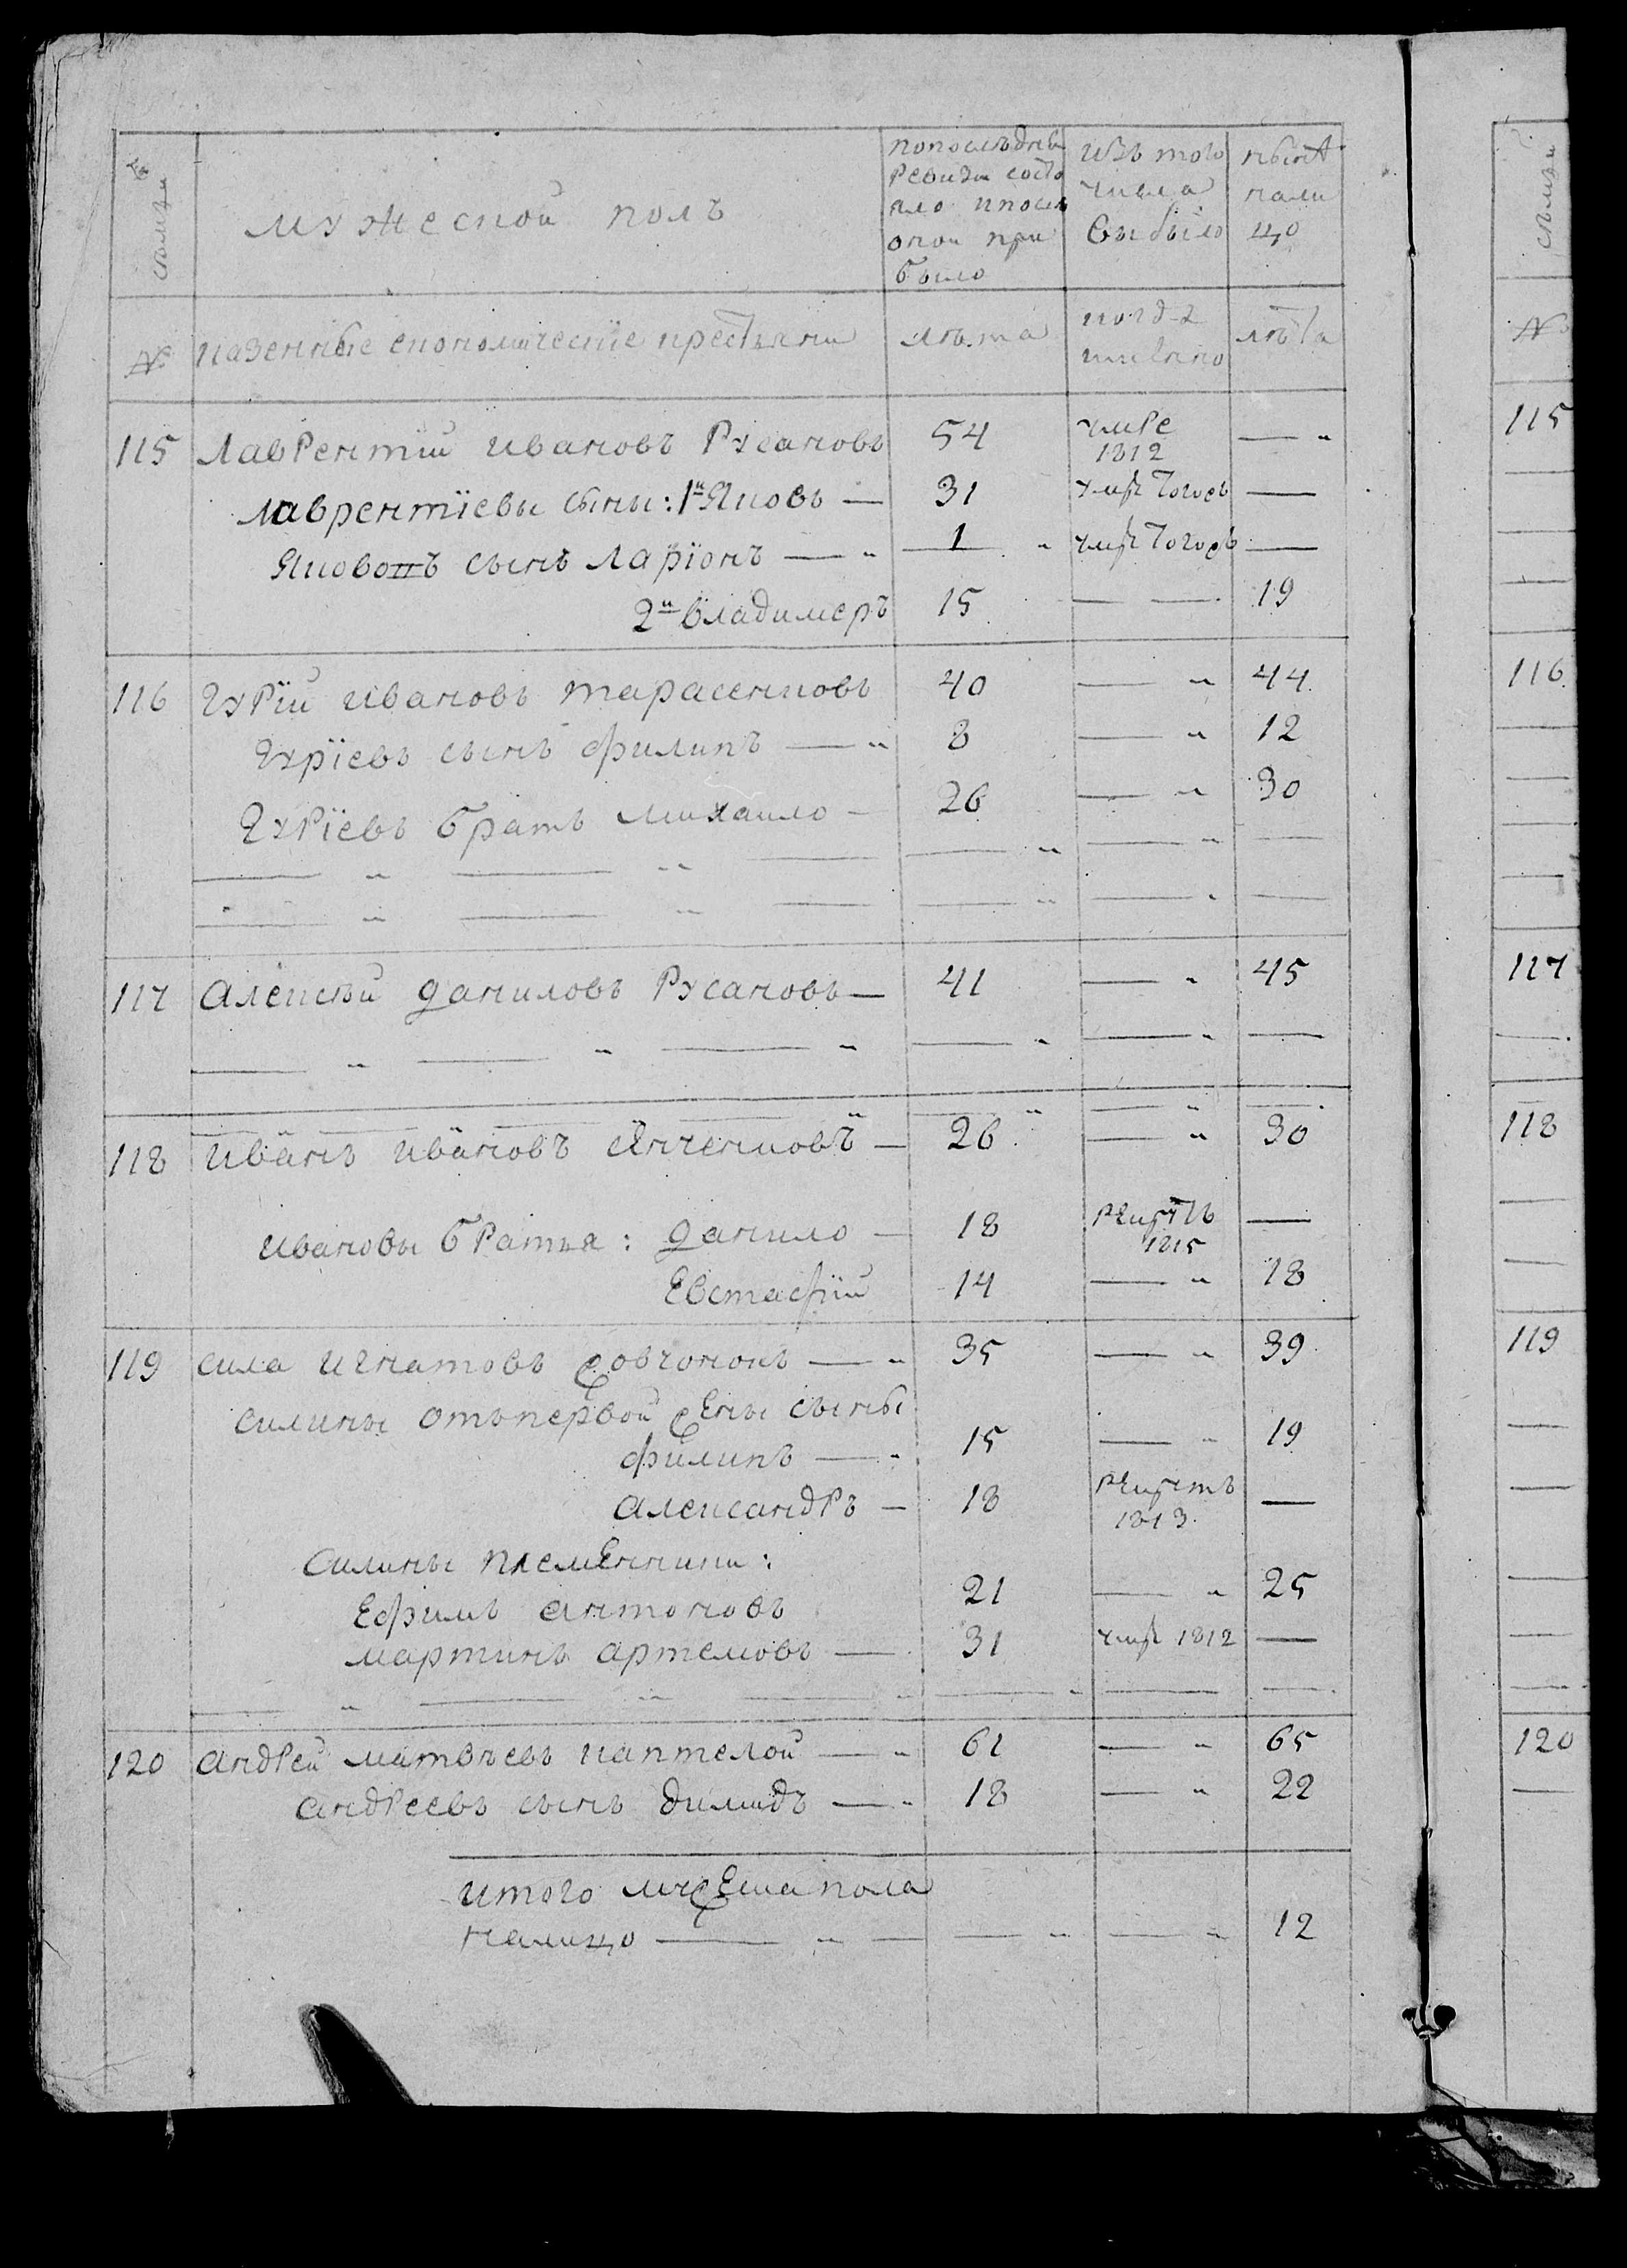 семьи
мужеской полъ
попослѣдней
ревизи состо
яло ипосле
оной при
было
изъ того
числа
выбыло
нынѣ
нали
цо
семьи
№
казенные економические крестьяня
лѣта
когда
именно
лѣта
№
115 Лаврентий ивановъ Русановъ 54 умре 1812 — „
115
лаврентиевы сыны: 1й Яковъ — 31 умре тогожъ —
Яковопъ сынъ ларионъ — „ 1 „ умре тогожъ —
2й владимеръ 15 — — 19
116 Гурий ивановъ тарасенковъ 40 — „ 44
116
Гуриевъ сынъ филипъ — „ 8 — „ 12
Гуриевъ братъ михаило — 26 — „ 30
117 Алексѣй даниловъ Русановъ — 41 — „ 45
117
118 иванъ ивановъ Янченковъ — 26 — „ 30
118
ивановы братья: данило — 18 рекрутъ 1815 —
Евстафий 14 — „ 18
119 сила игнатовъ жовчонокъ — „ 35 — „ 39
119
силины отъпервой жены сыны
филипъ — „ 15 — „ 19
александръ — 18 рекрутъ 1813 —
силины племенники:
Ефимъ антоновъ 21 — „ 25
мартинъ артемовъ — 31 умре 1812 —
120 андрей матвѣевъ каптелой — „ 61 — „ 65
120
андреевъ сынъ димидъ — „ 18 — „ 22
итого мужеска пола
налицо — „ — — „ — „ 12